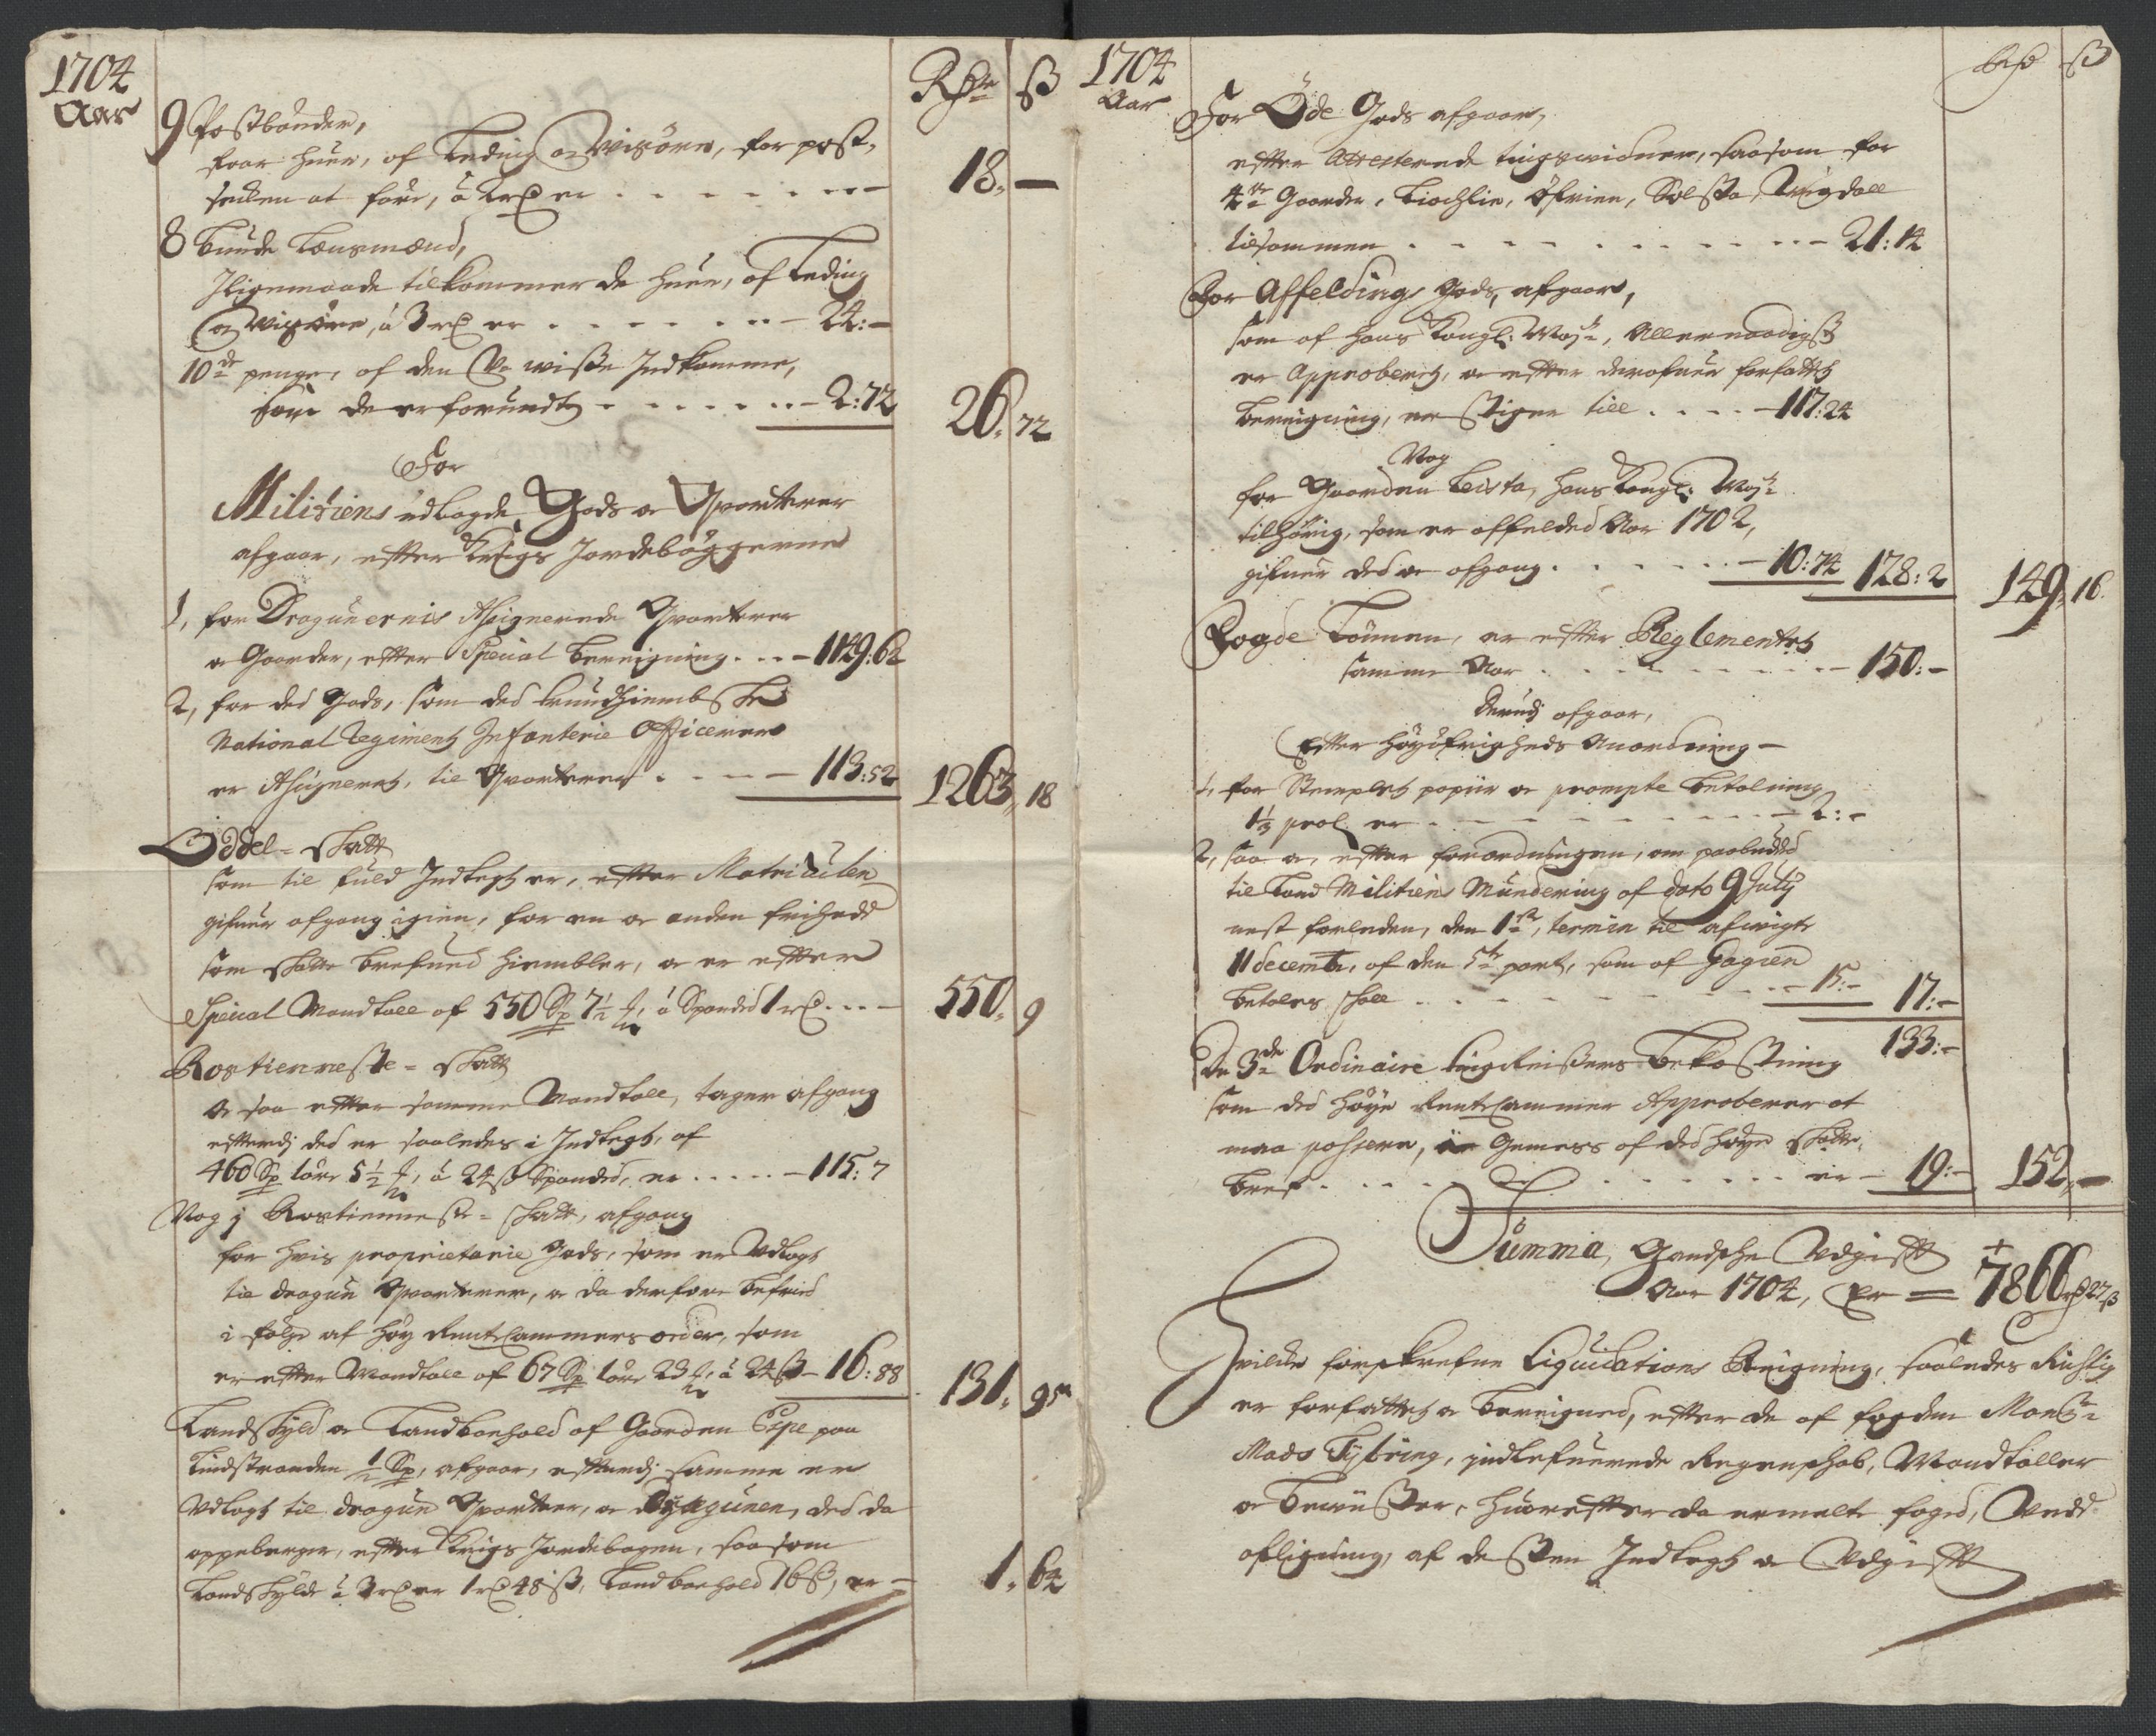 1704
Aar
Rdr ß
9 Postbønder,
faar huer, af Leding og Wisøre, for post,
seilen at føre, à 2 rd er . . . . . . . 18. —
8 Bunde Lensmænd,
Iligemaade tilkommer de huer, af Leding
og Wisøre, à 3 rd er . . . . . . . 24: —
10de penge, af den U-wisse Indkomme,
som de er forundt . . . . . . 2:72
26. 72
For
Militiens udlagde Gods og Qvarterer
afgaar, efter Krigs Jordebøggerne
1, for Dragunernis Assignerede Qvarterer
og Gaarder, efter Special Beregning . . . 1149:62
2, for ded Gods, som ded
National Regiments Infanterie Officerer
er Assignerit, til Qvarterer . . . . 113:52
1263. 18
Oddel-Skatt
som til fuld Indtegt er, efter Matriculen
gifuer afgang igien, for en og anden frihed
som Skatte brefued hiembler, og er efter
Special Mandtall af 550 Sp 7½ , à Spanded 1 rd . . . 550. 9
Rostienneste-Skatt
og saa efter samme Mandtall, tager afgang
efterdj ded er saaledes i Indtegt, af
460 Sp 1 øre 5½ , à 24 ß Spanded, er . . . . . 115:7
Nog j Rostienneste-Skatt, afgang
for hvis proprietarie Gods, som er Udlagt
til dragun Qvarterer, og da derfore befried
i følge af høy RenteCammers order, som
er efter Mandtall af 67 Sp 1 øre 23 , à 24 ß 16:88
131. 95
Landskyld og Landboehold af Gaarden Eipe paa
Lindstranden ½ Sp, afgaar, efterdj samme er
Udlagt til dragun Qvarteer, og dragunen, ded da
oppeberger, efter Krigs Jordebogen, saasom
Landskyld à 3 rd er 1 rd 48 ß, Landboehold 16 ß, er — 1. 64
1704
Aar
Rd ß
For Øde Gods afgaar,
efter Atesterede tingswidner, saasom for
4re Gaarder, Øfrien,
tilsammen . . . . . . . . . 21:14
For Affeldings Gods, afgaar,
som af hans Kongl: Mayt, Allernaadigst
er Approberet, og efter derofuer forfattet
beregning, er stiger till . . . . 117:24
Nog
for Gaarden Leista, hans Kongl: Mayt
tilhørig, som er affelded Aar 1702,
gifuer ded og afgang . . . . . . 10:74 128:2
149. 16.
Fogde Lønnen, er efter Reglementet
samme Aar . . . . . . . . 150:—
derudj afgaar,
Efter høyøfrigheds Anordning —
1, for Stemplet papiir og prompte betalning
1⅓ procl er . . . . . . . . . 2:—
2, saa og, efter forordningen, om paabuded
til Land Militiens Mundering af dato 9 July
nest forleden, den 1ste, termin til afwigte
11 decembr, af den 5te part, som af Gagien
betales skall . . . . . . . . 15:— 17:—
133:—
De 3de Ordinaire tingReisers Bekostning
som ded høye RenteCammer Approberer at
maa passere, Gemess af ded høye Skatte,
bref . . . . . . . . . er — 19:— 152. —
Summa, Gandske Udgifft
Aar 1704, Er = 7866 rd 27 ß
Hvilke forskrefne Liquidations Reigning, saaledes Rigtig
er forfattet og bereigned, efter de af fogden Monsr
Mads indlefuerede Regenskab, Mandtaller
og bewiißer, huorefter da ermelte foged, Ved
afligning, af desßen Indtegt og Udgifft